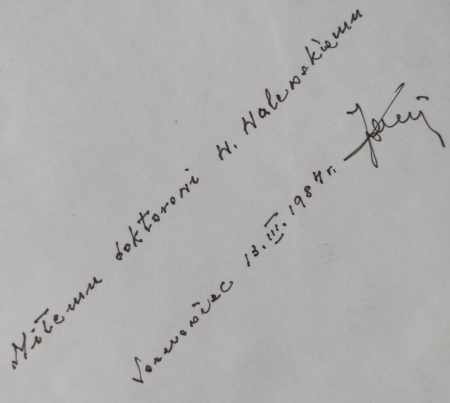 Miłemu doktorowi W. Walewskiemu
Sosnowiec 13.III.1984r.